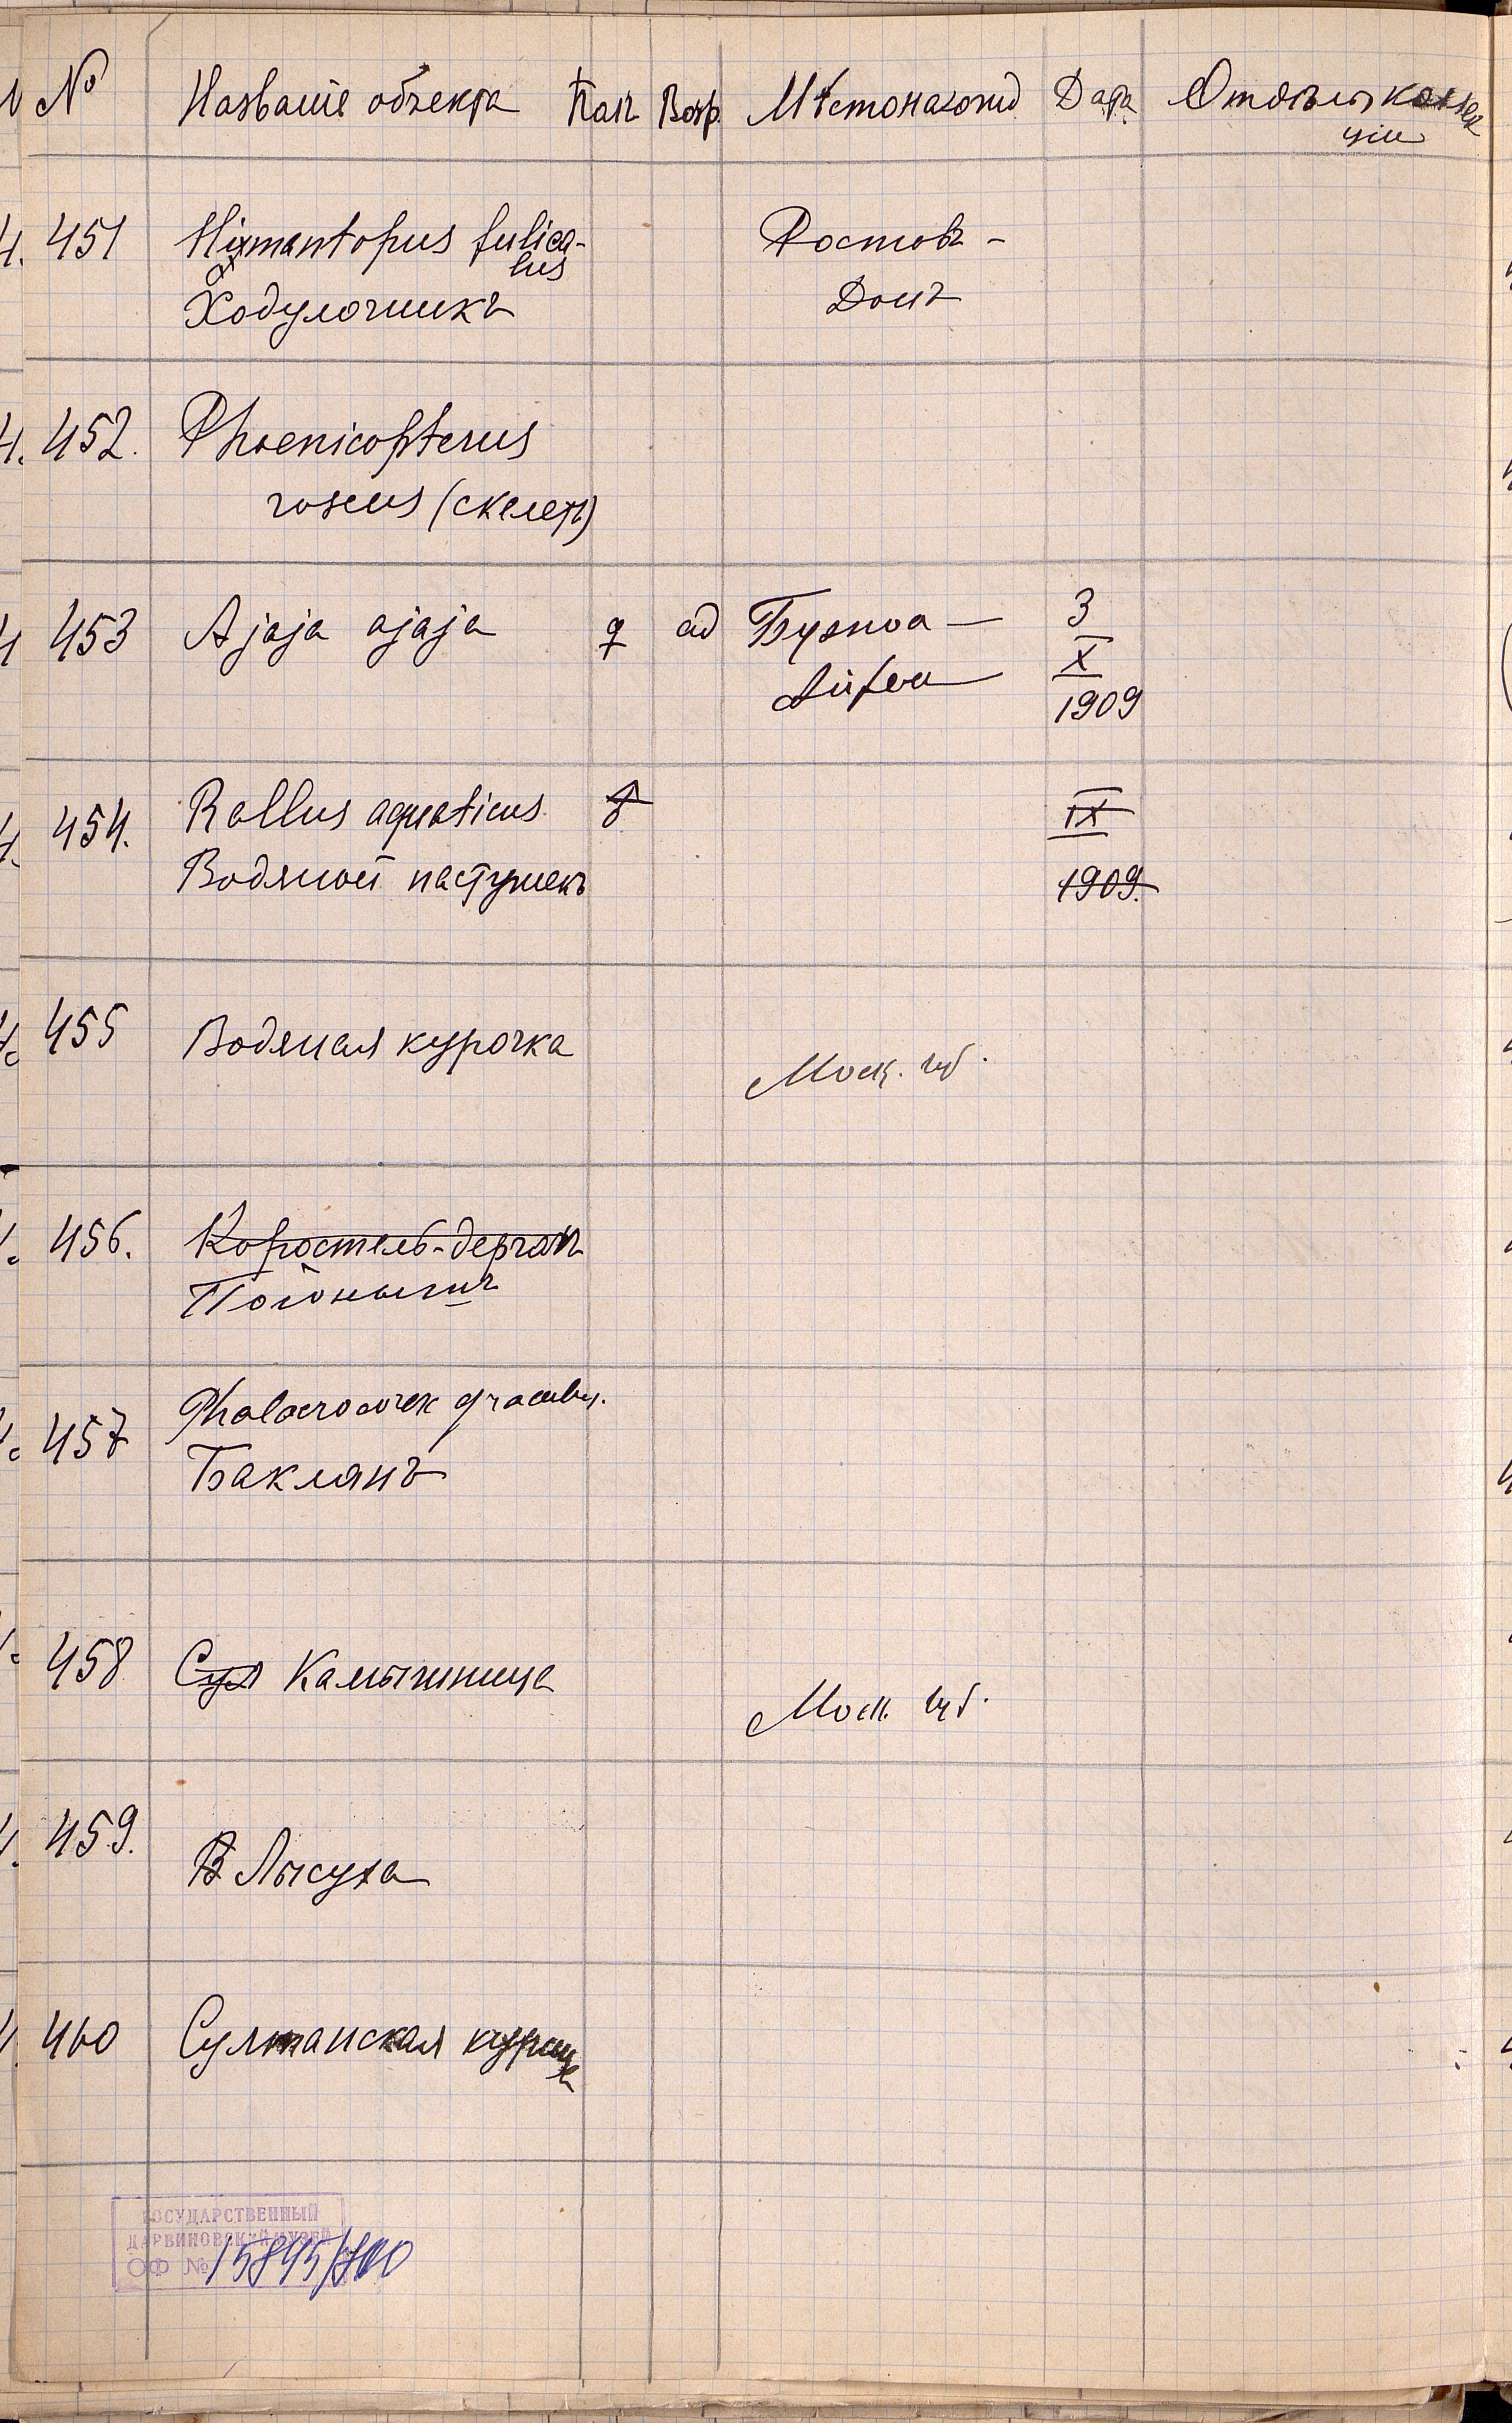 № Названіе объекта Полъ Возр. Мѣстонахожд Дата Отдѣлы коллек
ціи
451 Himantopus fulica-
lus
Ходулочникъ
Ростовъ -
Донъ
452. Phoenicopterus
roseus (скелетъ)
453 Ajaja ajaja ♀ ad Буэноа — 3
X
1909
454. Rallus aquaticus ♂ IX
Водяной пастушекъ 1909.
455 Водяная курочка
Моск. губ.
456. Коростель-дергачъ
Погонышъ
457 Phalacrocorax graculus.
Бакланъ
458 Сул Камышница
Моск. губ.
459.
В Лысуха
460 Султанская курица
ГОСУДАРСТВЕННЫЙ
ДАРВИНОВСКИЙ МУЗЕЙ
ОФ № 15845/